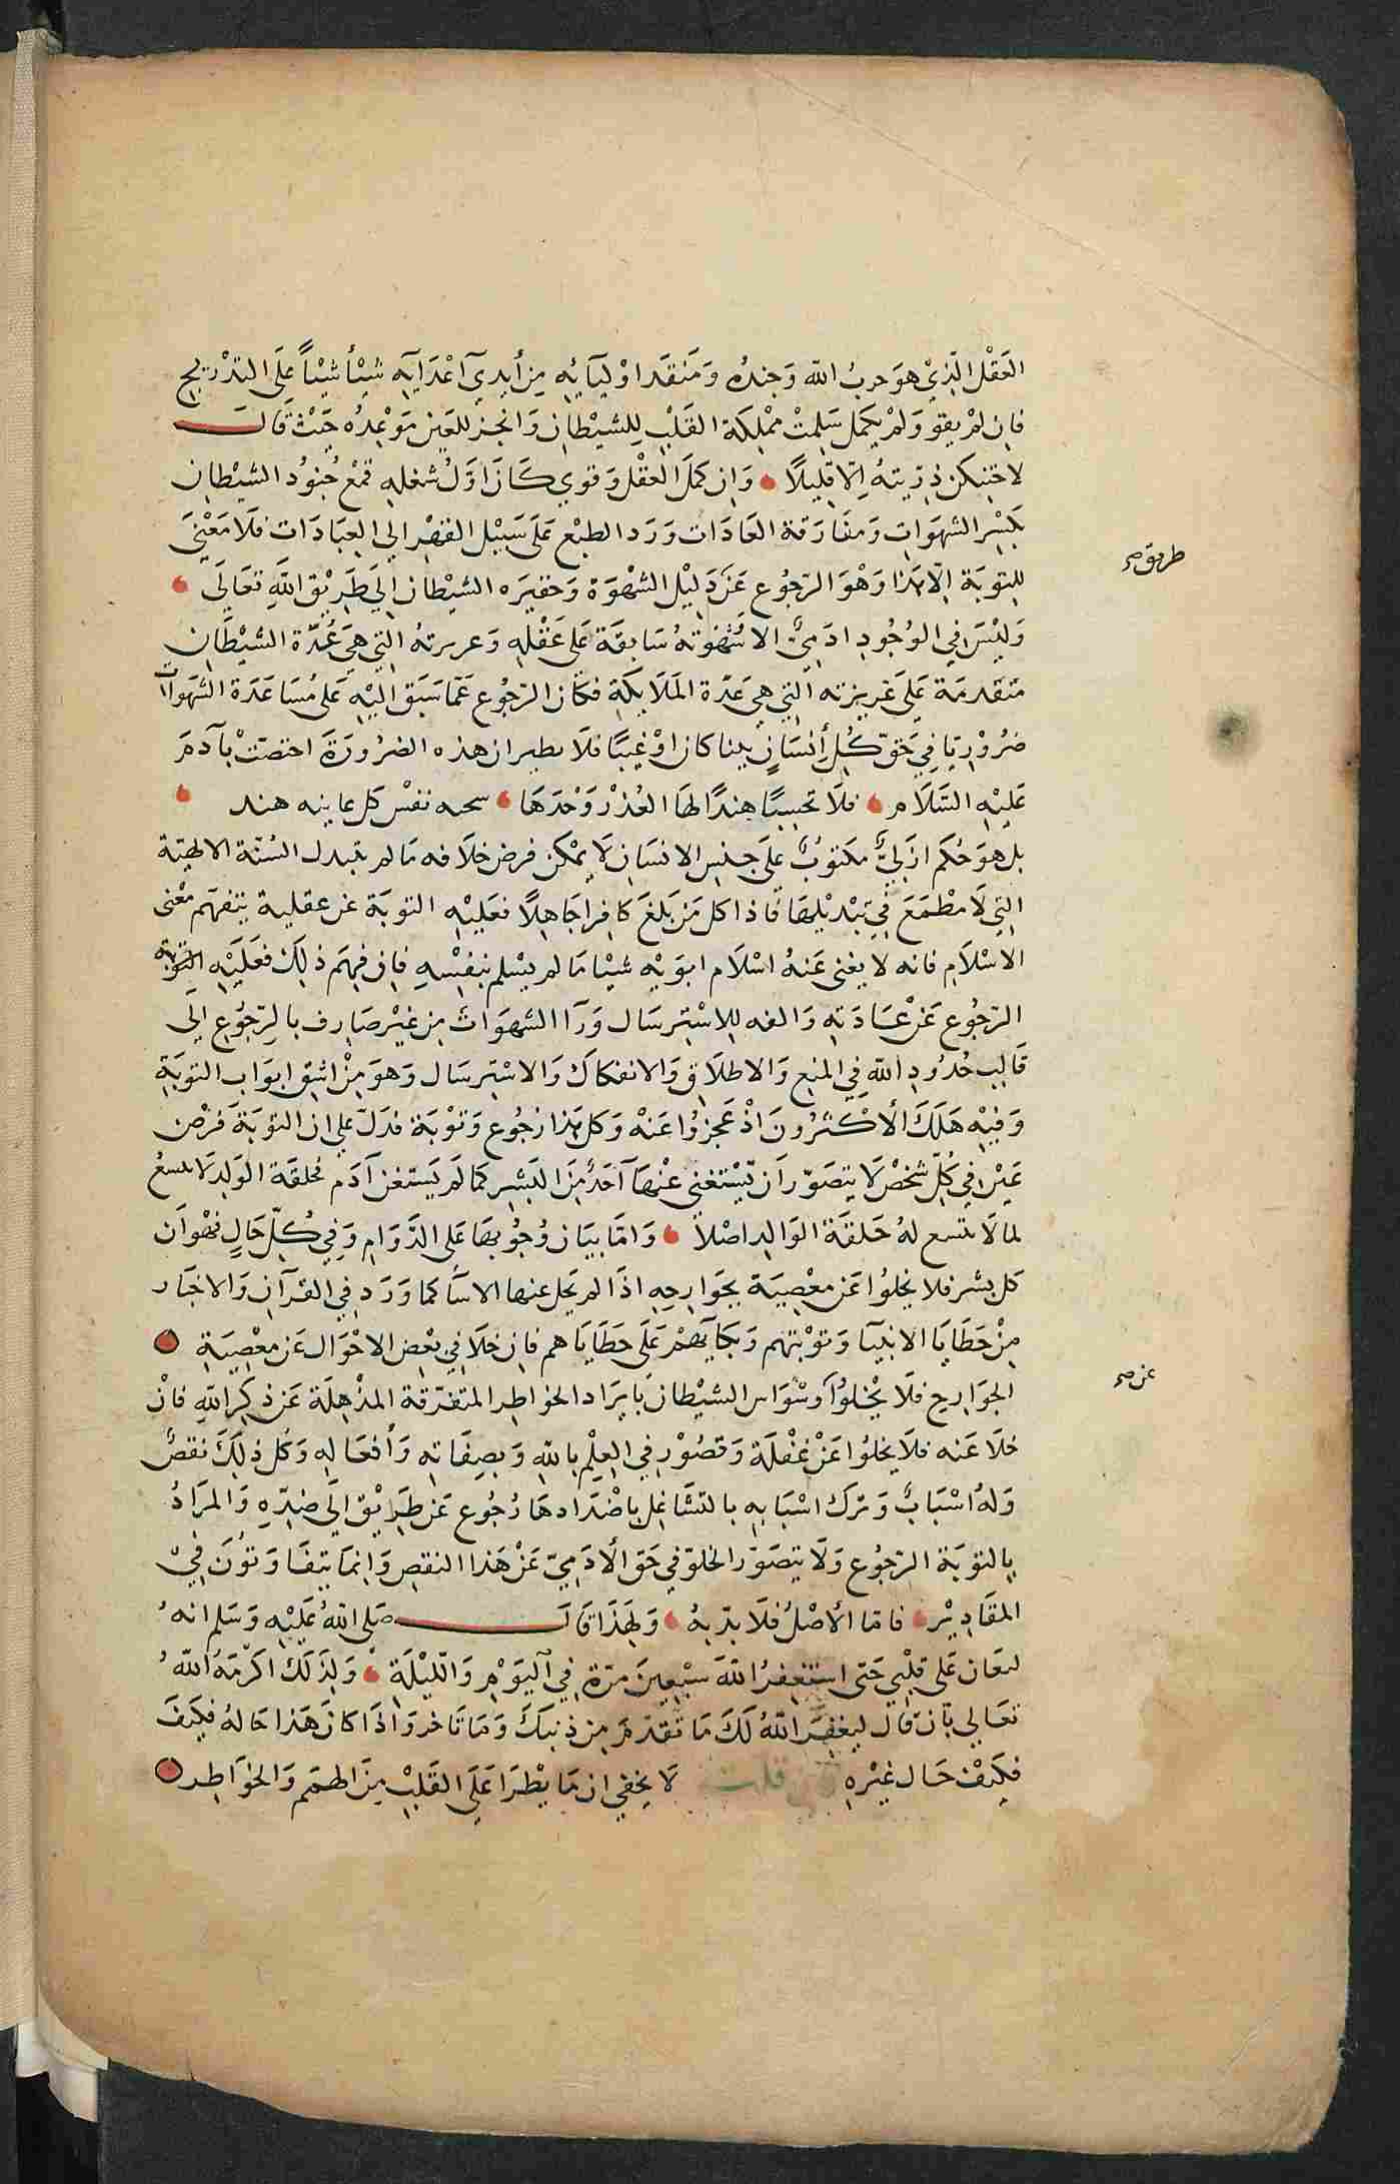 العَقْل الّذِيْ هوَ حربُ الله وَجندُه وَمَنقَد اوْلِيَآئِه مِن أيدِيَ آعْدَآيَه شيْأ شيْاً علَى التدْريج
فاِن لمْ يقو وَلمْ يكمل سَلِمتْ ممْلكة القلْب لِلشيْطان وَانجز للعين مَوْعِدُه حَيْث قالَ
لاحتنكن ذِرّيتهُ اِلّا قليلاً وَاِن كملَ العقْل وَقوي كَانَ اوّلُ شغلهِ قمْع جُنوُد الشيْطان
بَكسْرِ الشهوَات وَمفَارَقة العَادَات وَرَد الطبْع عَلىَ سَبيْل القهْر الي العِبَادَات فلَا معْنىَ
للتوبَة اِلّا هذا وَهْوَ الرّجُوع عَن دَليْل الشهْوَة وَخفيرَه الشيْطان اِليَ طَرِيْق اللّهِ تعَالَى
طريق صح
وَليْسَ فِي الوُجُودِ ادَمِىٌّ الا شَهْوتهُ سَابقَة عَلى عَقْلهِ وَعريزتهُ التِي هيَ عُدّة الشيْطَان
متقدمَة عَلىَ غريزته التي هيَ عَدّة المَلَايكَةِ فكَان الرّجُوع عَمّا سَبَق اليْهِ عَلى مُسَاعَدَة الشهوات
ضرُوْريّا فِي حَقّ كُلِّ اِنسَانٍ نبيّا كان اوْ غبيًا فلَا يظن ان هذه الضرُورَةَ اختصتْ بآدمَ
عَليْهِ السَّلَام فلَا تحسِبًا هندًا لهَا الغُدْر وَحْدَهَا سجيه نفسْ كل غانيه هند
بل هوَ حُكم ازَليٌّ مكتوبٌ علَى جنسِ الانسَان لَا يمْكن فرض خلَافه مَا لم تتبدل السُنّة الالهيّة
التِي لَا مطْمَعَ فِي تبْديْلهَا فَاذا كل مَن بَلغَ كَافِرا جَاهِلاً فعَليْهِ التوبَة عن عقلية يتفهّم معْنى
الاسْلَامِ فانه لا يغنى عَنهُ اسْلَام ابوَيْه شيْيا مَا لم يسْلم بنفسِْهِ فاِن فهِمَ ذلِكَ فعَليْهِ التوبة
الرّجُوع عَنْ عَادَتهِ وَالفه للِاسْترسَال وَرَآ الشهوَات مِن غيْر صَارف بالرّجُوع الَى
قَالب حُدُودِ الله فِي المنِع وَالاطلَاق وَالانفكاك وَالاسْترسَال وَهوَ مِنْ اشق ابوَاب التوبَةِ
وَفيْه هَلَكَ الأكْثرُونَ اذْ عَجزوُا عَنْه وَكل هذا رُجُوع وَتوْبَة فدَلّ علي ان التوبَةَ فرْض
عَيْن فِي كُلّ شخصْ لَا يتصَوّر اَن يَّسْتغنى عَنْهَآ اَحَدٌ مِّنَ البَشر كمَا لَم يَستغن آدَم فخلقَة الوَلد لَا تتسعُ
لما لَا تتسع لهُ خلقَة الوَالِد اصْلاً وَامّا بيَان وُجُوبهَا عَلى الدَّوَامِ وَفِي كُلّ حَالٍ فهْواَن
كل بشر فلا يخلوُا عَن معْصِيَة بجَوَارحِهِ اذَا لم يَخل عنها الاسَاُ كما وَرَدَ في القرآن وَالاخبَار
مِنْ خطَايَا الانبيَا وَتوْبتهم وَبكآيهم عَلَى خطَايَاهم فاِن خلَا فِي بعْض الاحْوَال عَن معْصِيَةِ
الجوَارح فلَا يخْلوُا وسْوَاس الشيْطانَ بايرَاد الخوَاطِر المتفرّقة المذْهِلَة عَن ذكِر اللّهِ فانْ
عن صح
خلَا عَنه فلَا يخلوُا عَنْ غفْلَة وَقصُوْر فِي العِلْم باللّهِ وَبصِفاتهِ وَأفعَالِهِ وَكُل ذلِكَ نقصٌ
وَلهُ اسْبَابٌ وَترْك اسْبَابهِ بالتشَاغل باضْدَادهَا رُجُوع عَن طَرِيْقٍ الَى ضدّهِ وَالمرَادُ
بِالتوبَة الرّجُوع وَلَا يتصَوّر الخلوّ في حَق الأدَمِيّ عَنْ هَذا النقصِ وَانِمَا يتفَاوَتوُنَ فِيْ
المقَادِيْر فامّا الأصْلُ فلَا بدّ بهُ وَلهَذَا قالَ صَلى اللهُ عَليْهِ وَسَلم انهُ
ليغان عَلى قلْبيْ حَتى استغفرُ اللهَ سَبْعِينَ مرّة فِي اليَوْمِ وَالليْلَةِ وَلذَلكَ اكرمَهُ اللّهُ
تعَالي بآن قال ليغفِرَ اللهُ لكَ مَا تقدّمَ مِن ذنبكَ وَمَا تَاخرَ وَاذَا كانَ هَذا حَالهُ فكيَفَ
فكيَفْ حَال غيْرِه قلت لَا يخفي ان مَا يطْرَا عَلَى القلْبْ مِنَ الهمَم وَالخوَاطِر